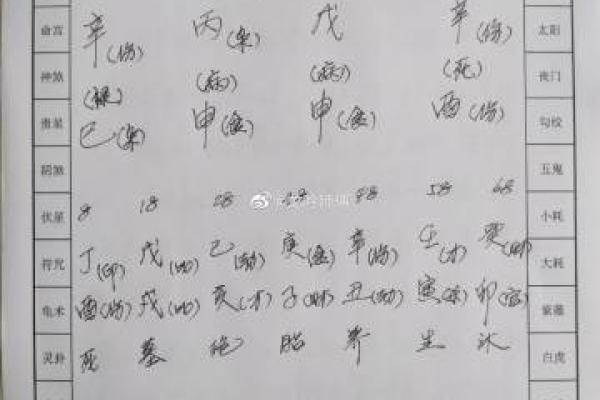 俞宫 辛(伤) 丙(枭) 戊 辛(伤) 太阳
神煞 (禄) (病) (病) (死) 丧门
贵星 巳(枭) 申(食) 申(食) 酉(伤) 勾绞
阴煞 五鬼
伏星 8 18 28 38 48 58 68 小耗
符咒 丁(印) 戊(比) 己(劫) 庚(食) 辛(伤) 壬(才) 癸(财) 大耗
龟术 酉(伤) 戌(比) 亥(才) 子(财) 丑(劫) 寅 卯(官) 紫薇
灵卦 死 墓 绝 胎 养 生 沐 白虎